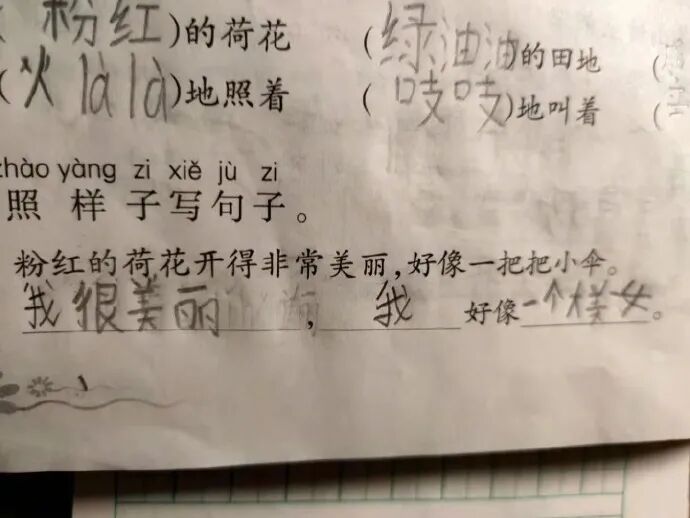 (粉红)的荷花 (绿油油)的田地 (
(火là là)地照着 (吱吱)地叫着 (
zhào yàng zi xiě jù zi
照样子写句子。
粉红的荷花开得非常美丽,好像一把把小伞。
我很美丽,我好像一个大美女。